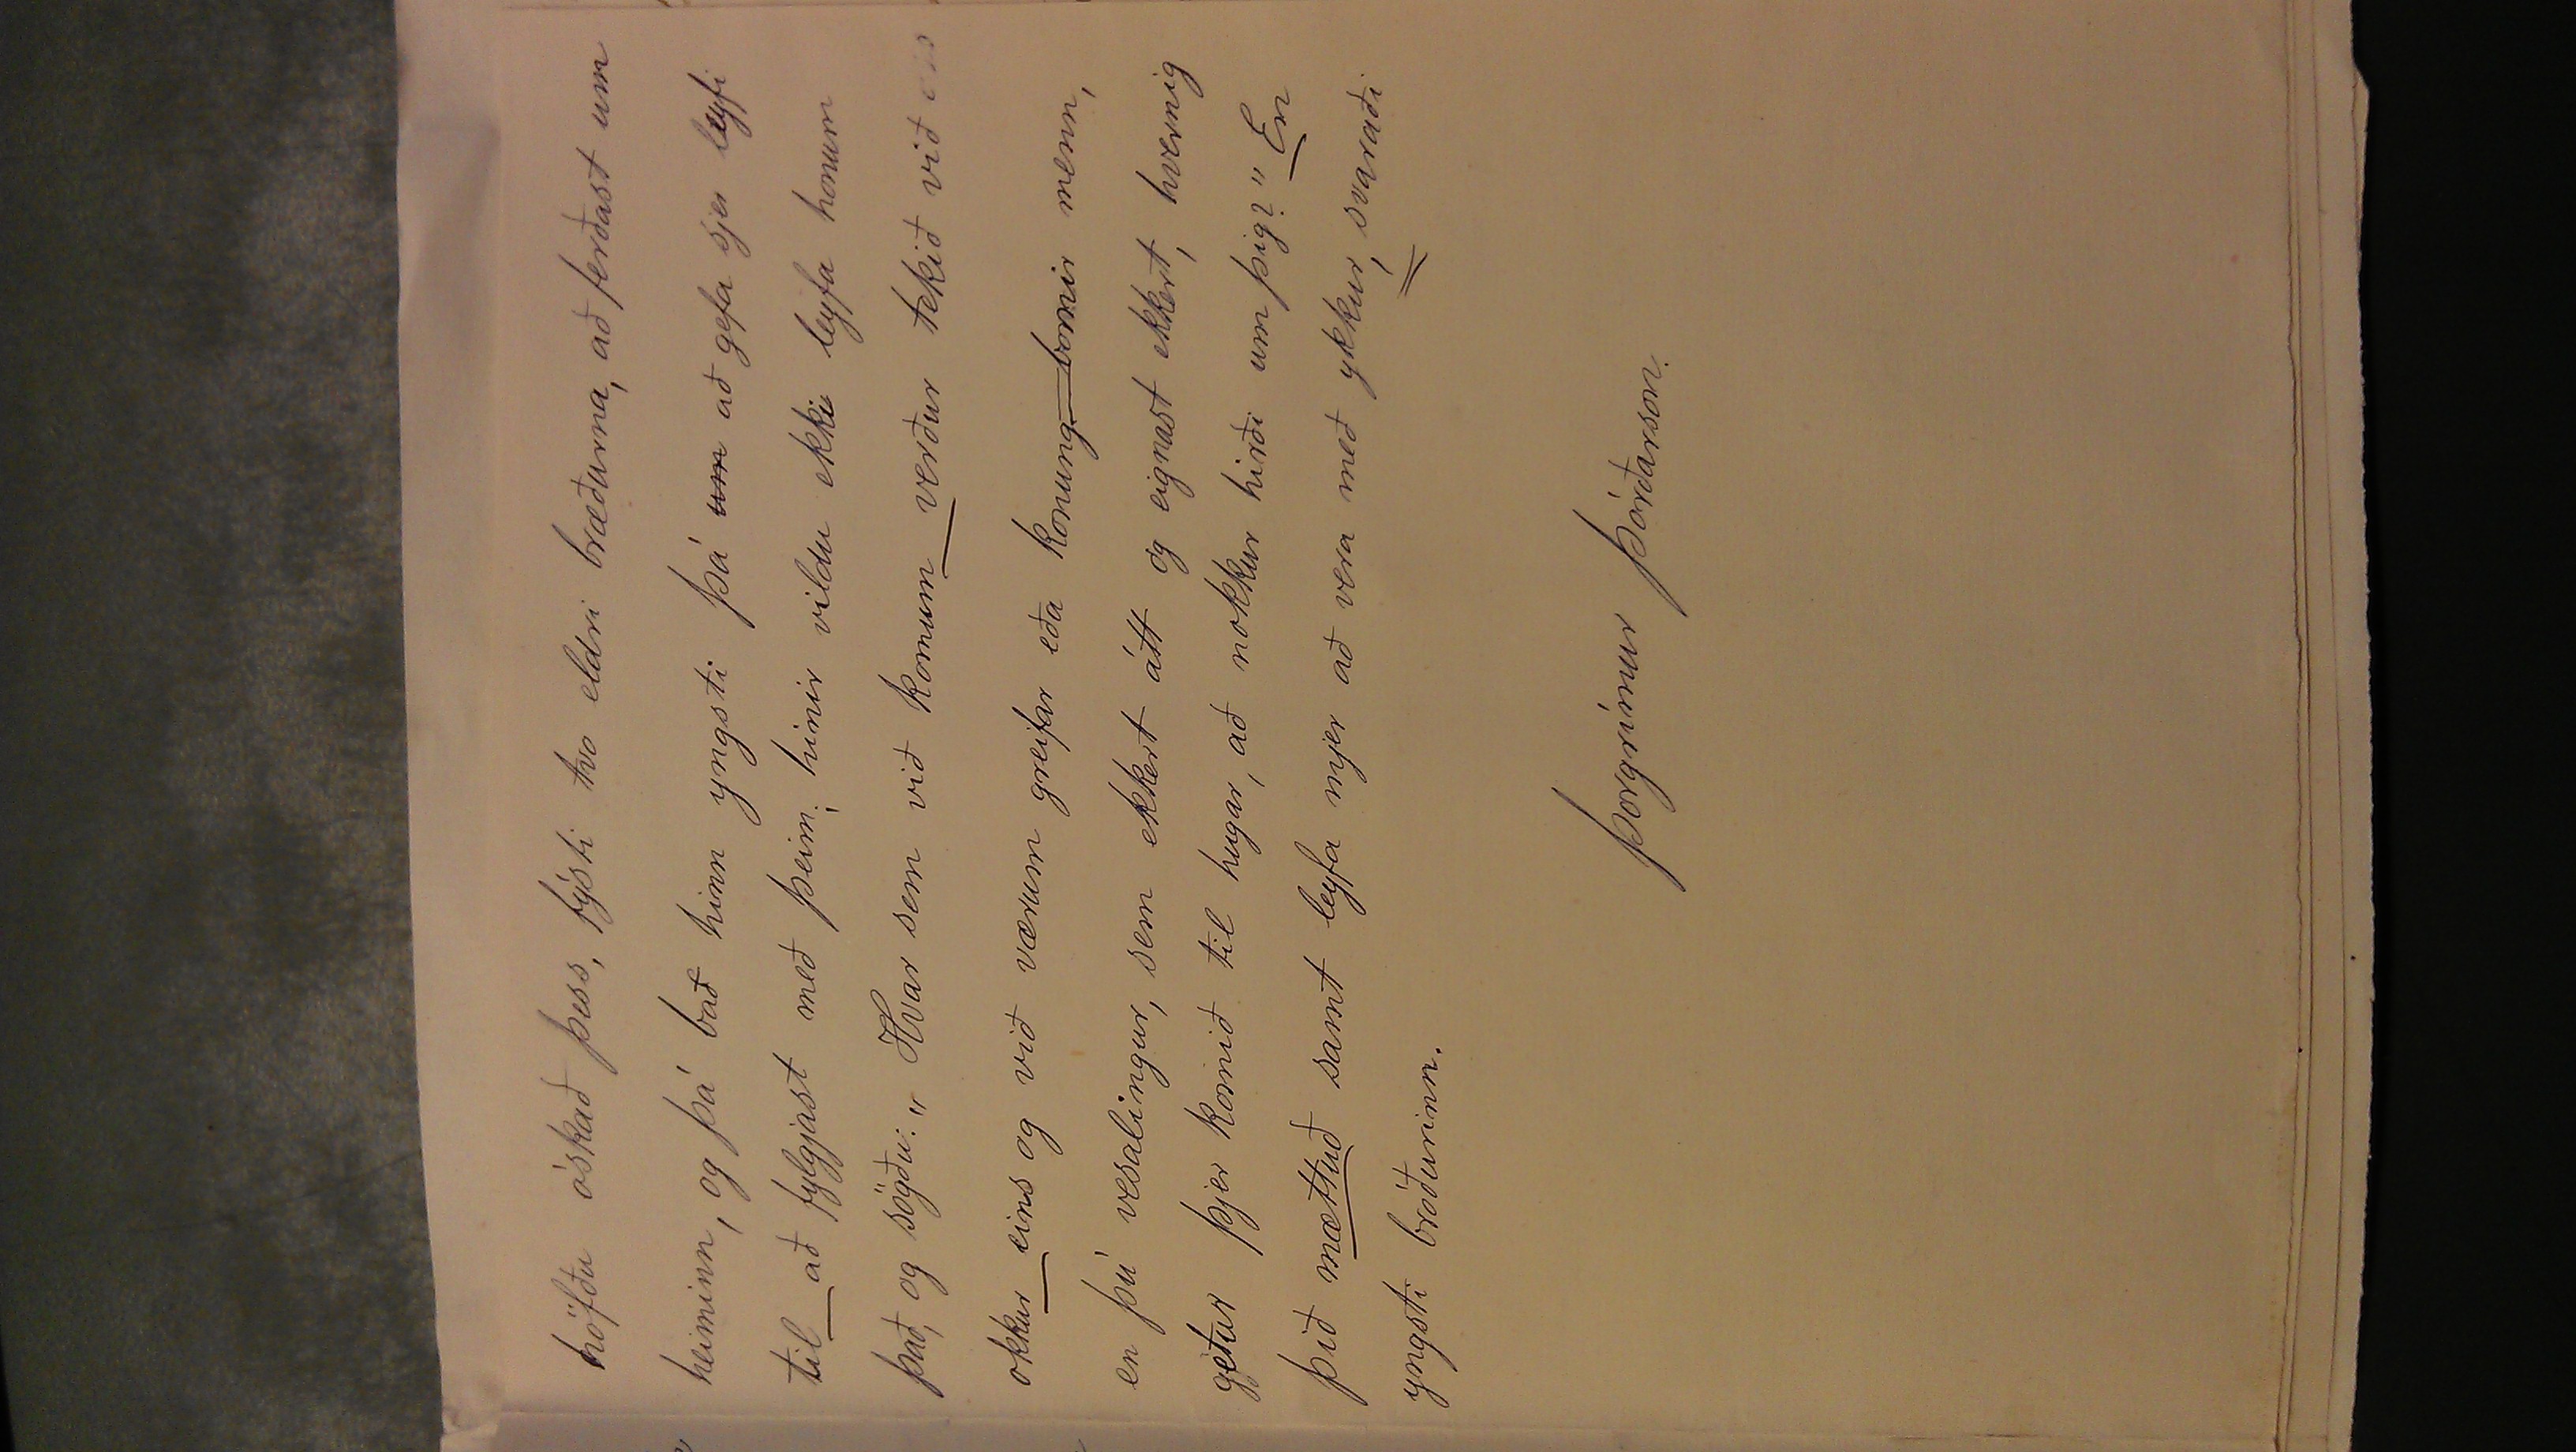 höfðu óskað þess, fýsti tvo eldri bræðurna, að ferðast um
heiminn, og þá bað hinn yngsti þá um að gefa sjer leyfi
til að fylgjast með þeim; hinir vildu ekki leyfa honum
það, og sögðu: „Hvar sem við komum verður tekið við
okkur eins og við værum greifar eða konungbornir menn,
en þú vesalingur, sem ekkert átt og eignast ekkert, hvernig
getur þjer komið til hugar, að nokkur hirði um þig?" En
þið mættuð samt leyfa mjer að vera með ykkur, svaraði
yngsti bróðurinn.
Þorgrímur Þórðarson.